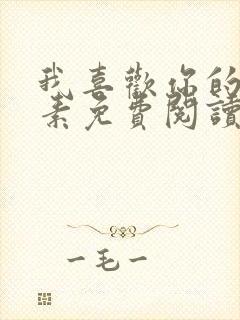 我喜歡你的
素免費閱讀
一毛一